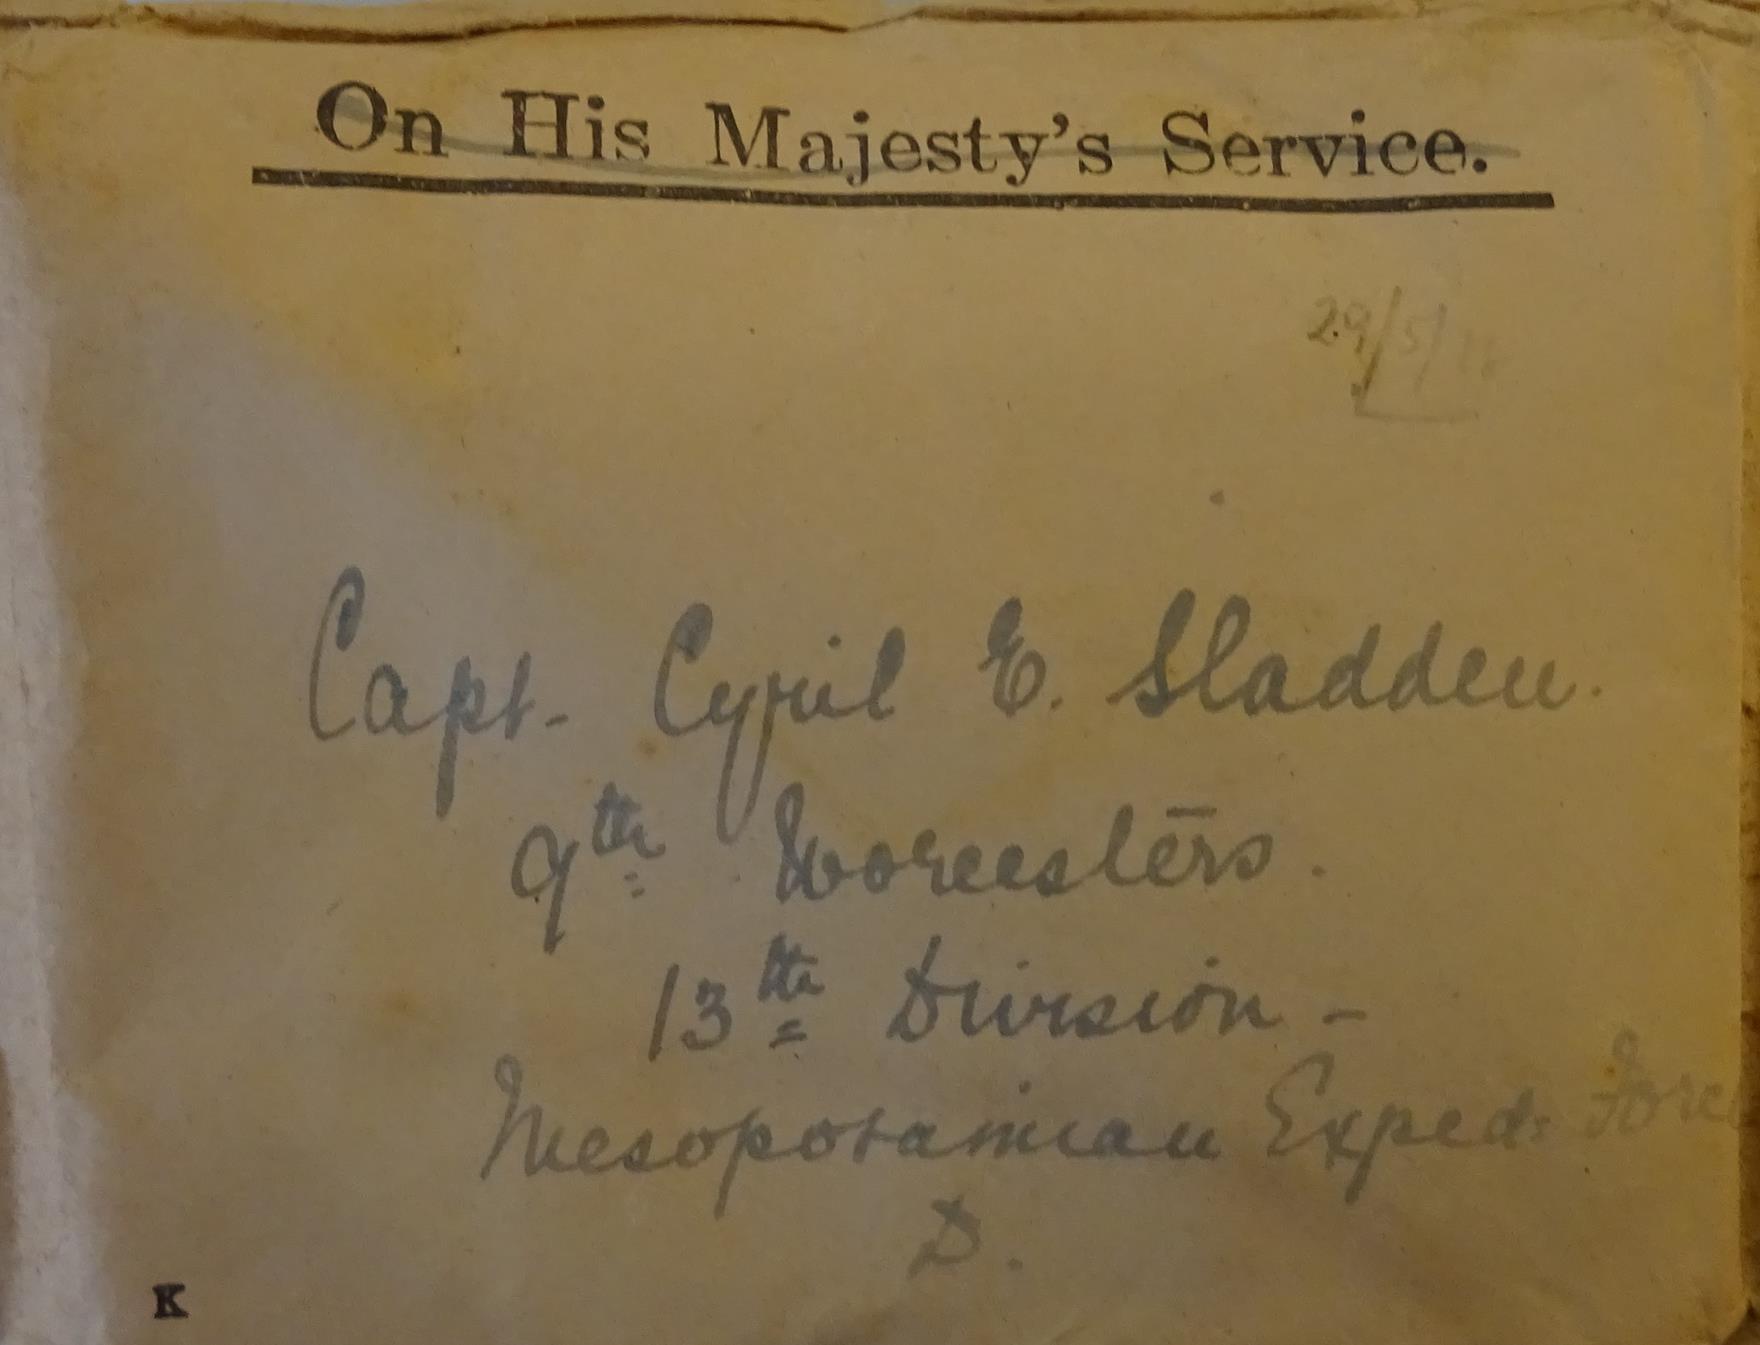 On His Majesty's Service.
29/5/
Capt. Cyril E. Sladden.
9th Worcesters.
13th Division -
Mesopotamian Exped. Force
D.
K